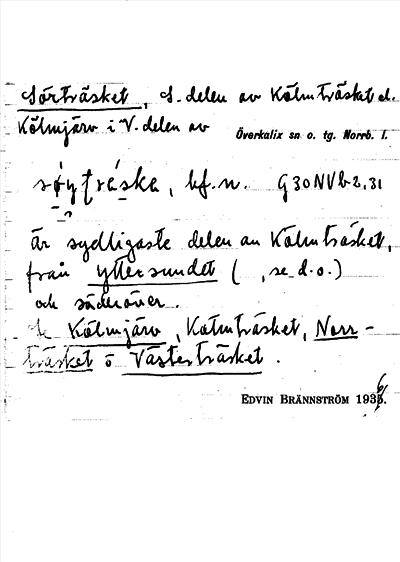 Sörträsket, S. delen av Kölmträsket el.
Kölmjärv i V. delen av
Överkalix sn o. tg. Norrb. l.
søytráska, bf. n. G30NVb2,31
är sydligaste delen av Kölmträsket,
från yttersundet ( , se d. o.)
och söderöver.
Kölmjärv, Kölmträsket, Norr-
träsket o Västerträsket.
EDVIN BRÄNNSTRÖM 193